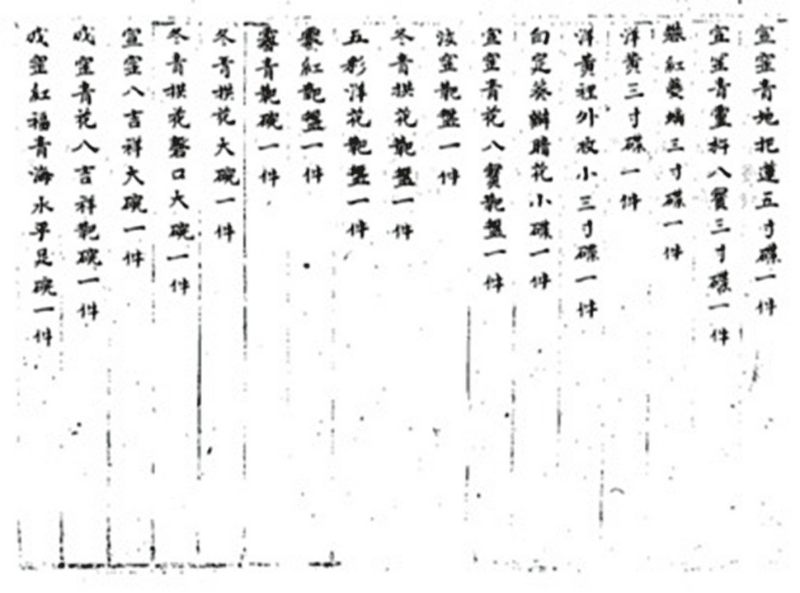 宣窑青地把蓮五寸碟一件
宣窑青靈杵八寳三寸碟一件
三寸碟一件
洋黄三寸碟一件
洋黄裡外收小三寸碟一件
白定葵瓣暗花小碟一件
宣窑青花八寳靶盤一件
汝窑靶盤一件
冬青拱花靶盤一件
五彩洋花靶盤一件
霁紅靶盤一件
霁青靶碗一件
冬青拱花大碗一件
冬青拱花磬口大碗一件
宣窑八吉祥大碗一件
成窑青花八吉祥靶碗一件
成窑紅福青海水平足碗一件